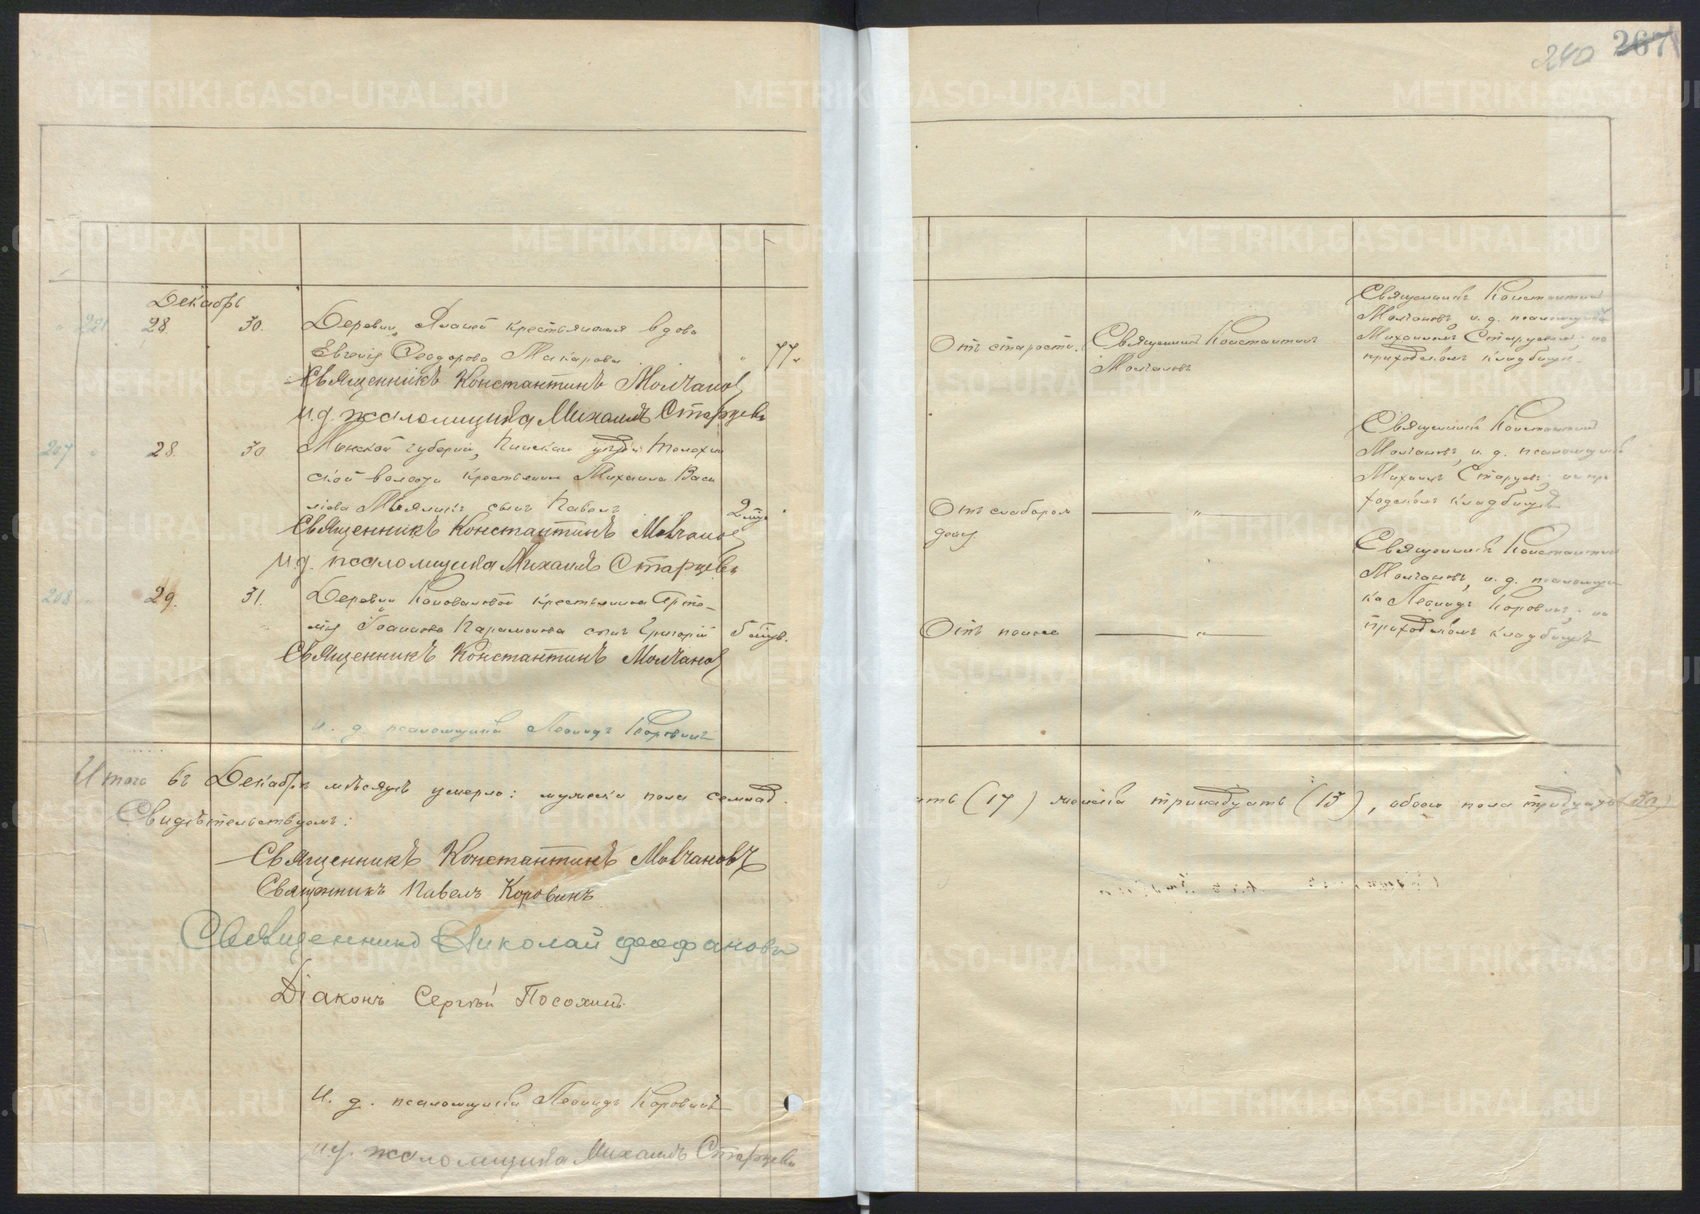 240 267
Декабрь
221 28 30. Деревни Ялани крестьянская вдова
Евгенія Ѳеодорова Макарова 77
Священникъ Константинъ Молчановъ
и.д. псаломщика Михаилъ Старцевъ
Отъ старости. Священникъ Константинъ
Молчановъ
Священникъ Константинъ
Молчановъ, и. д. псаломщика
Михаилъ Старцевъ, на
приходскомъ кладбищѣ.
207 28 30 Минской губерніи, Пинскаго уѣзда
ской волости крестьянина Михаила Васи
ліева сынъ Павелъ 2
Священникъ Константинъ Молчановъ
и.д. псаломщика Михаилъ Старцевъ
Отъ слабаго ро
Священникъ Константинъ
Молчановъ, и. д. псаломщика
Михаилъ Старцевъ, на при
ходскомъ кладбищѣ
208 29. 31. Деревни Коноваловой крестьянина
Іоаннова Парамонова сынъ Григорій
Священникъ Константинъ Молчановъ
и. д. псаломщика Леонидъ Коровинъ
Отъ поноса
Священникъ Константинъ
Молчановъ, и. д. псаломщи
ка Леонидъ Коровинъ, на
приходскомъ кладбищѣ
Итого въ Декабрѣ мѣсяцѣ умерло: мужска пола семнад
ать (17) женска тринадцать (13), обоего пола тридцать (30)
Свидѣтельствуемъ:
Священникъ Константинъ Молчановъ
Священникъ Павелъ Коровинъ
Священникъ Николай Феофановъ
Діаконъ Сергѣй Посохинъ.
И. д. псаломщика Леонидъ Коровинъ
и.д. псаломщика Михаилъ Старцевъ
METRIKI.GASO-URAL.RU